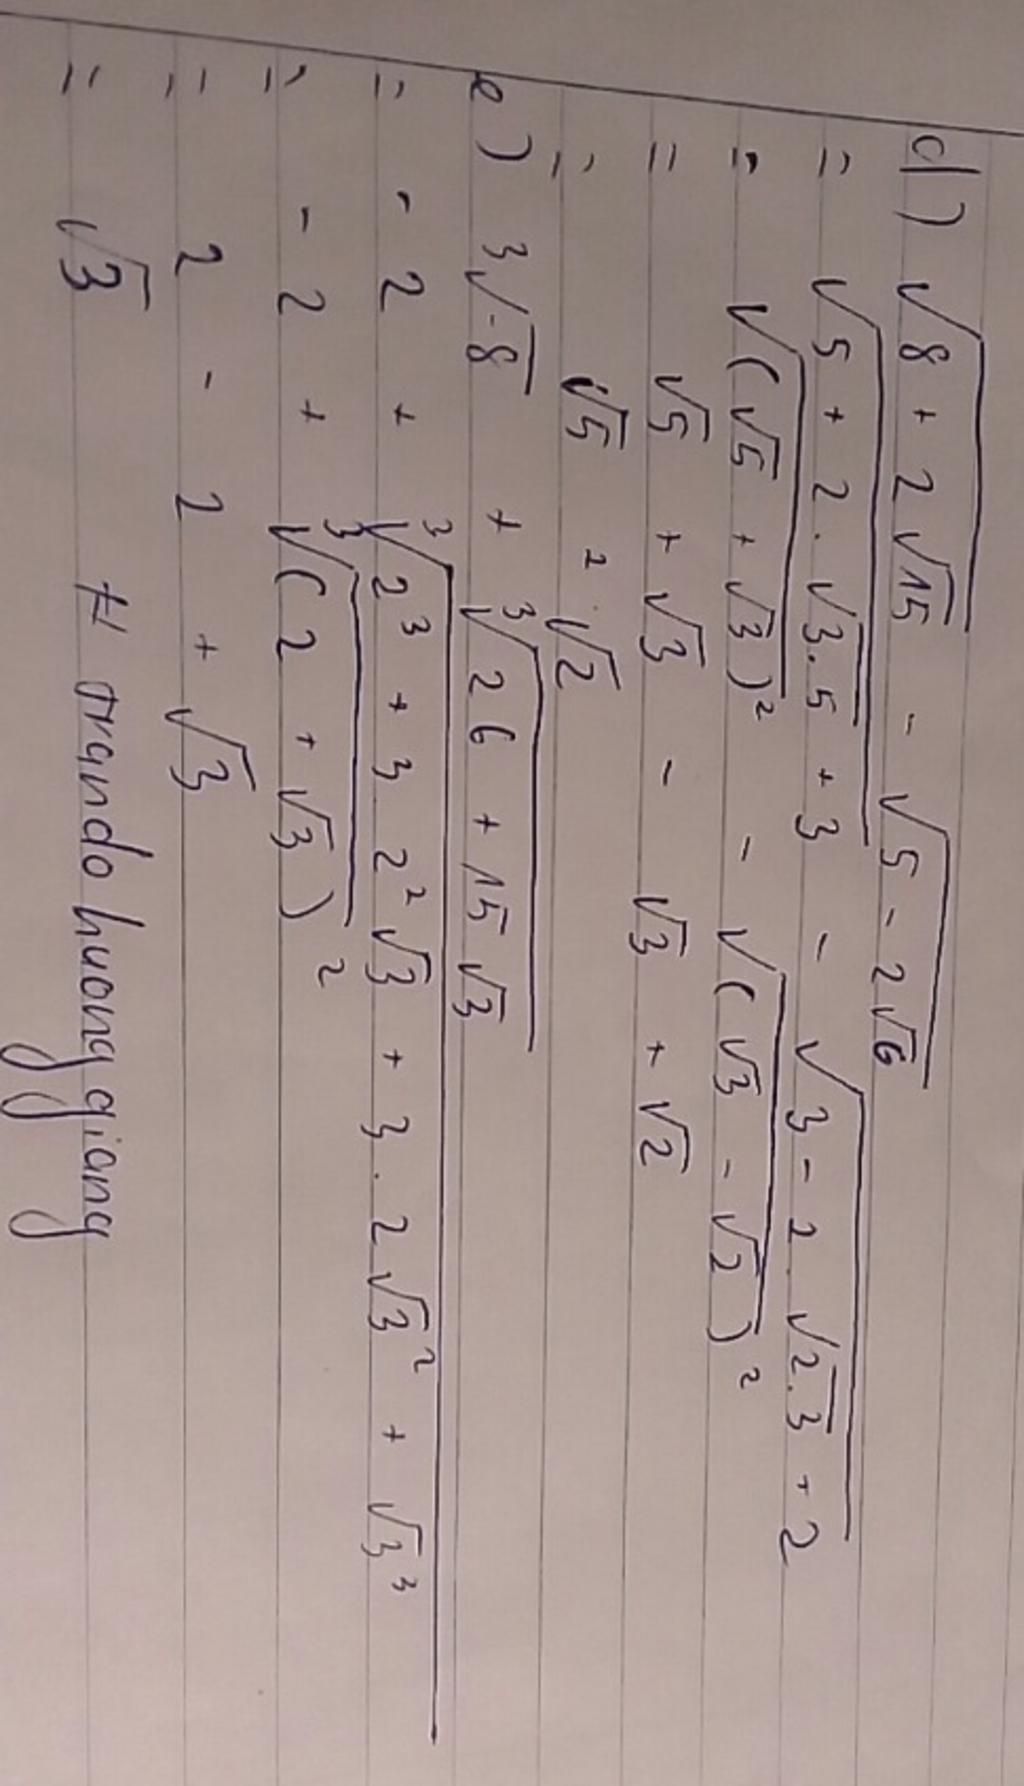 d) √(8 + 2√15) - √(5 - 2√6)
= √(5 + 2.√(3.5) + 3) - √(3 - 2.√(2.3) + 2)
= √(√5 + √3)² - √(√3 - √2)²
= √5 + √3 - √3 + √2
= √5 + √2
e) ³√-8 + ³√(26 + 15√3)
= -2 + ³√(2³ + 3 2²√3 + 3.2√3² + √3³)
= -2 + ³√(2 + √3)²
= 2 - 2 + √3
= √3
# trandohuonggiang